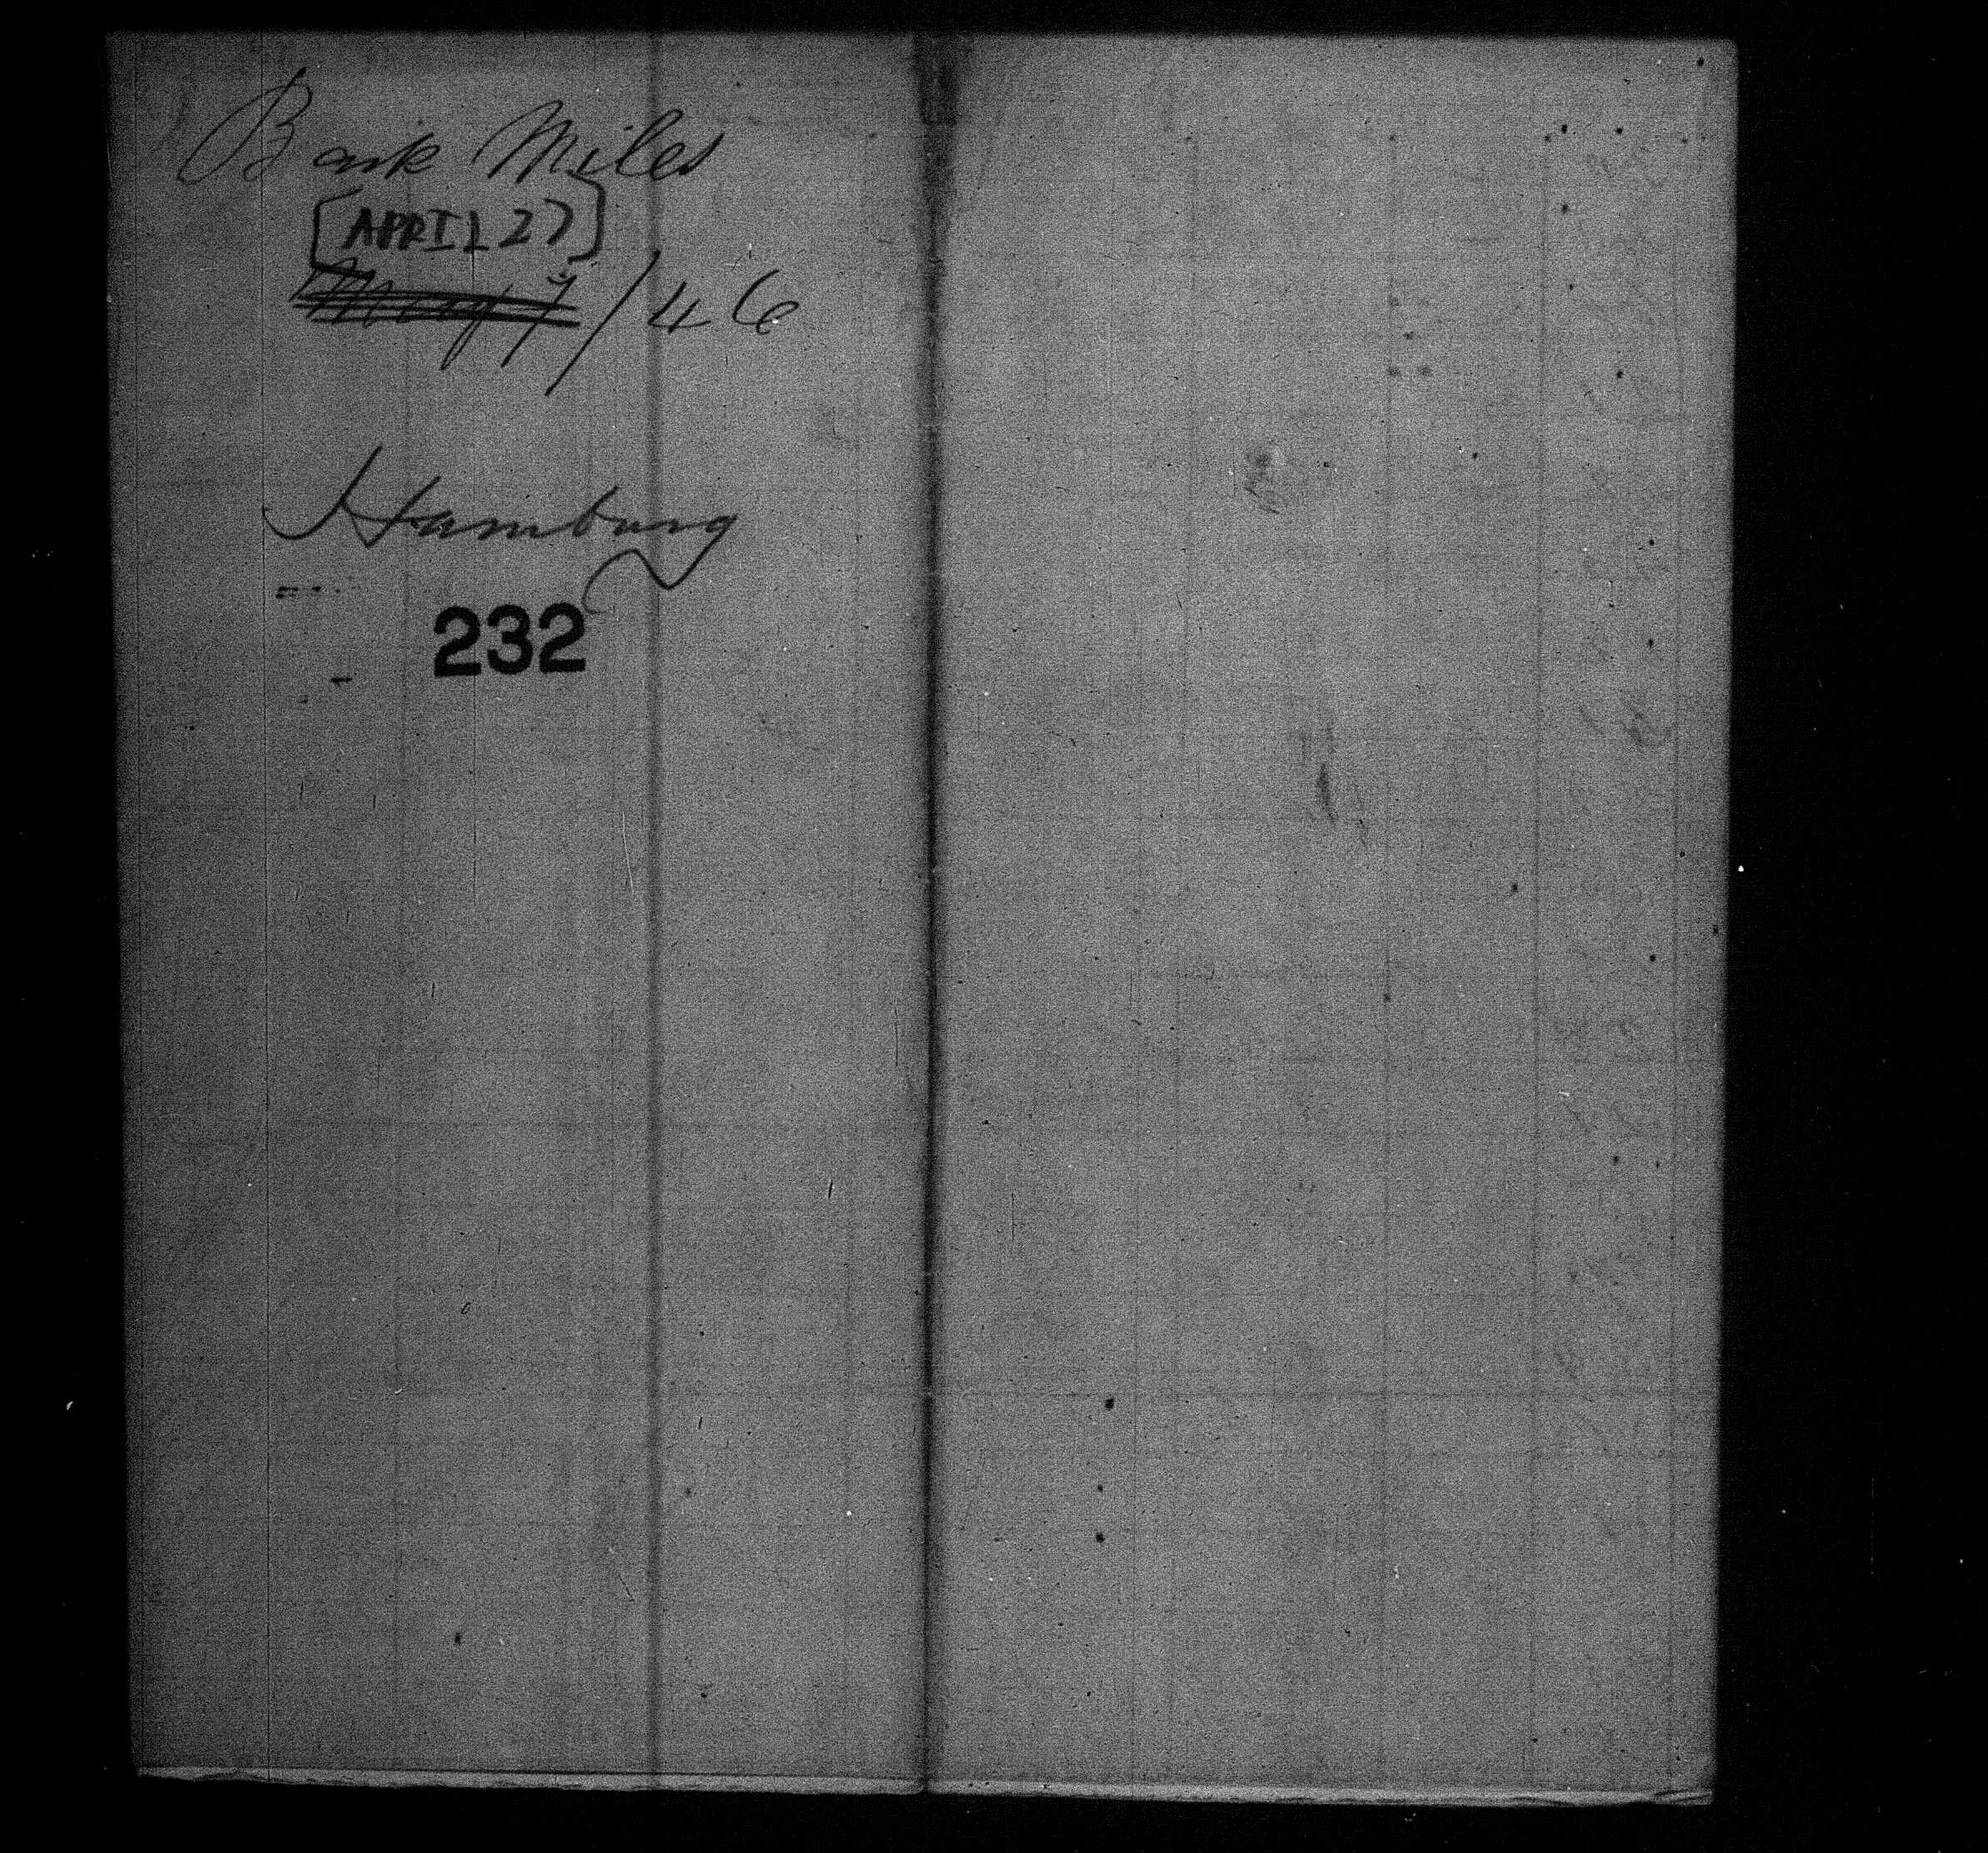 Bark Miles
[APRIL 27]
May 7/46
Hamburg
232